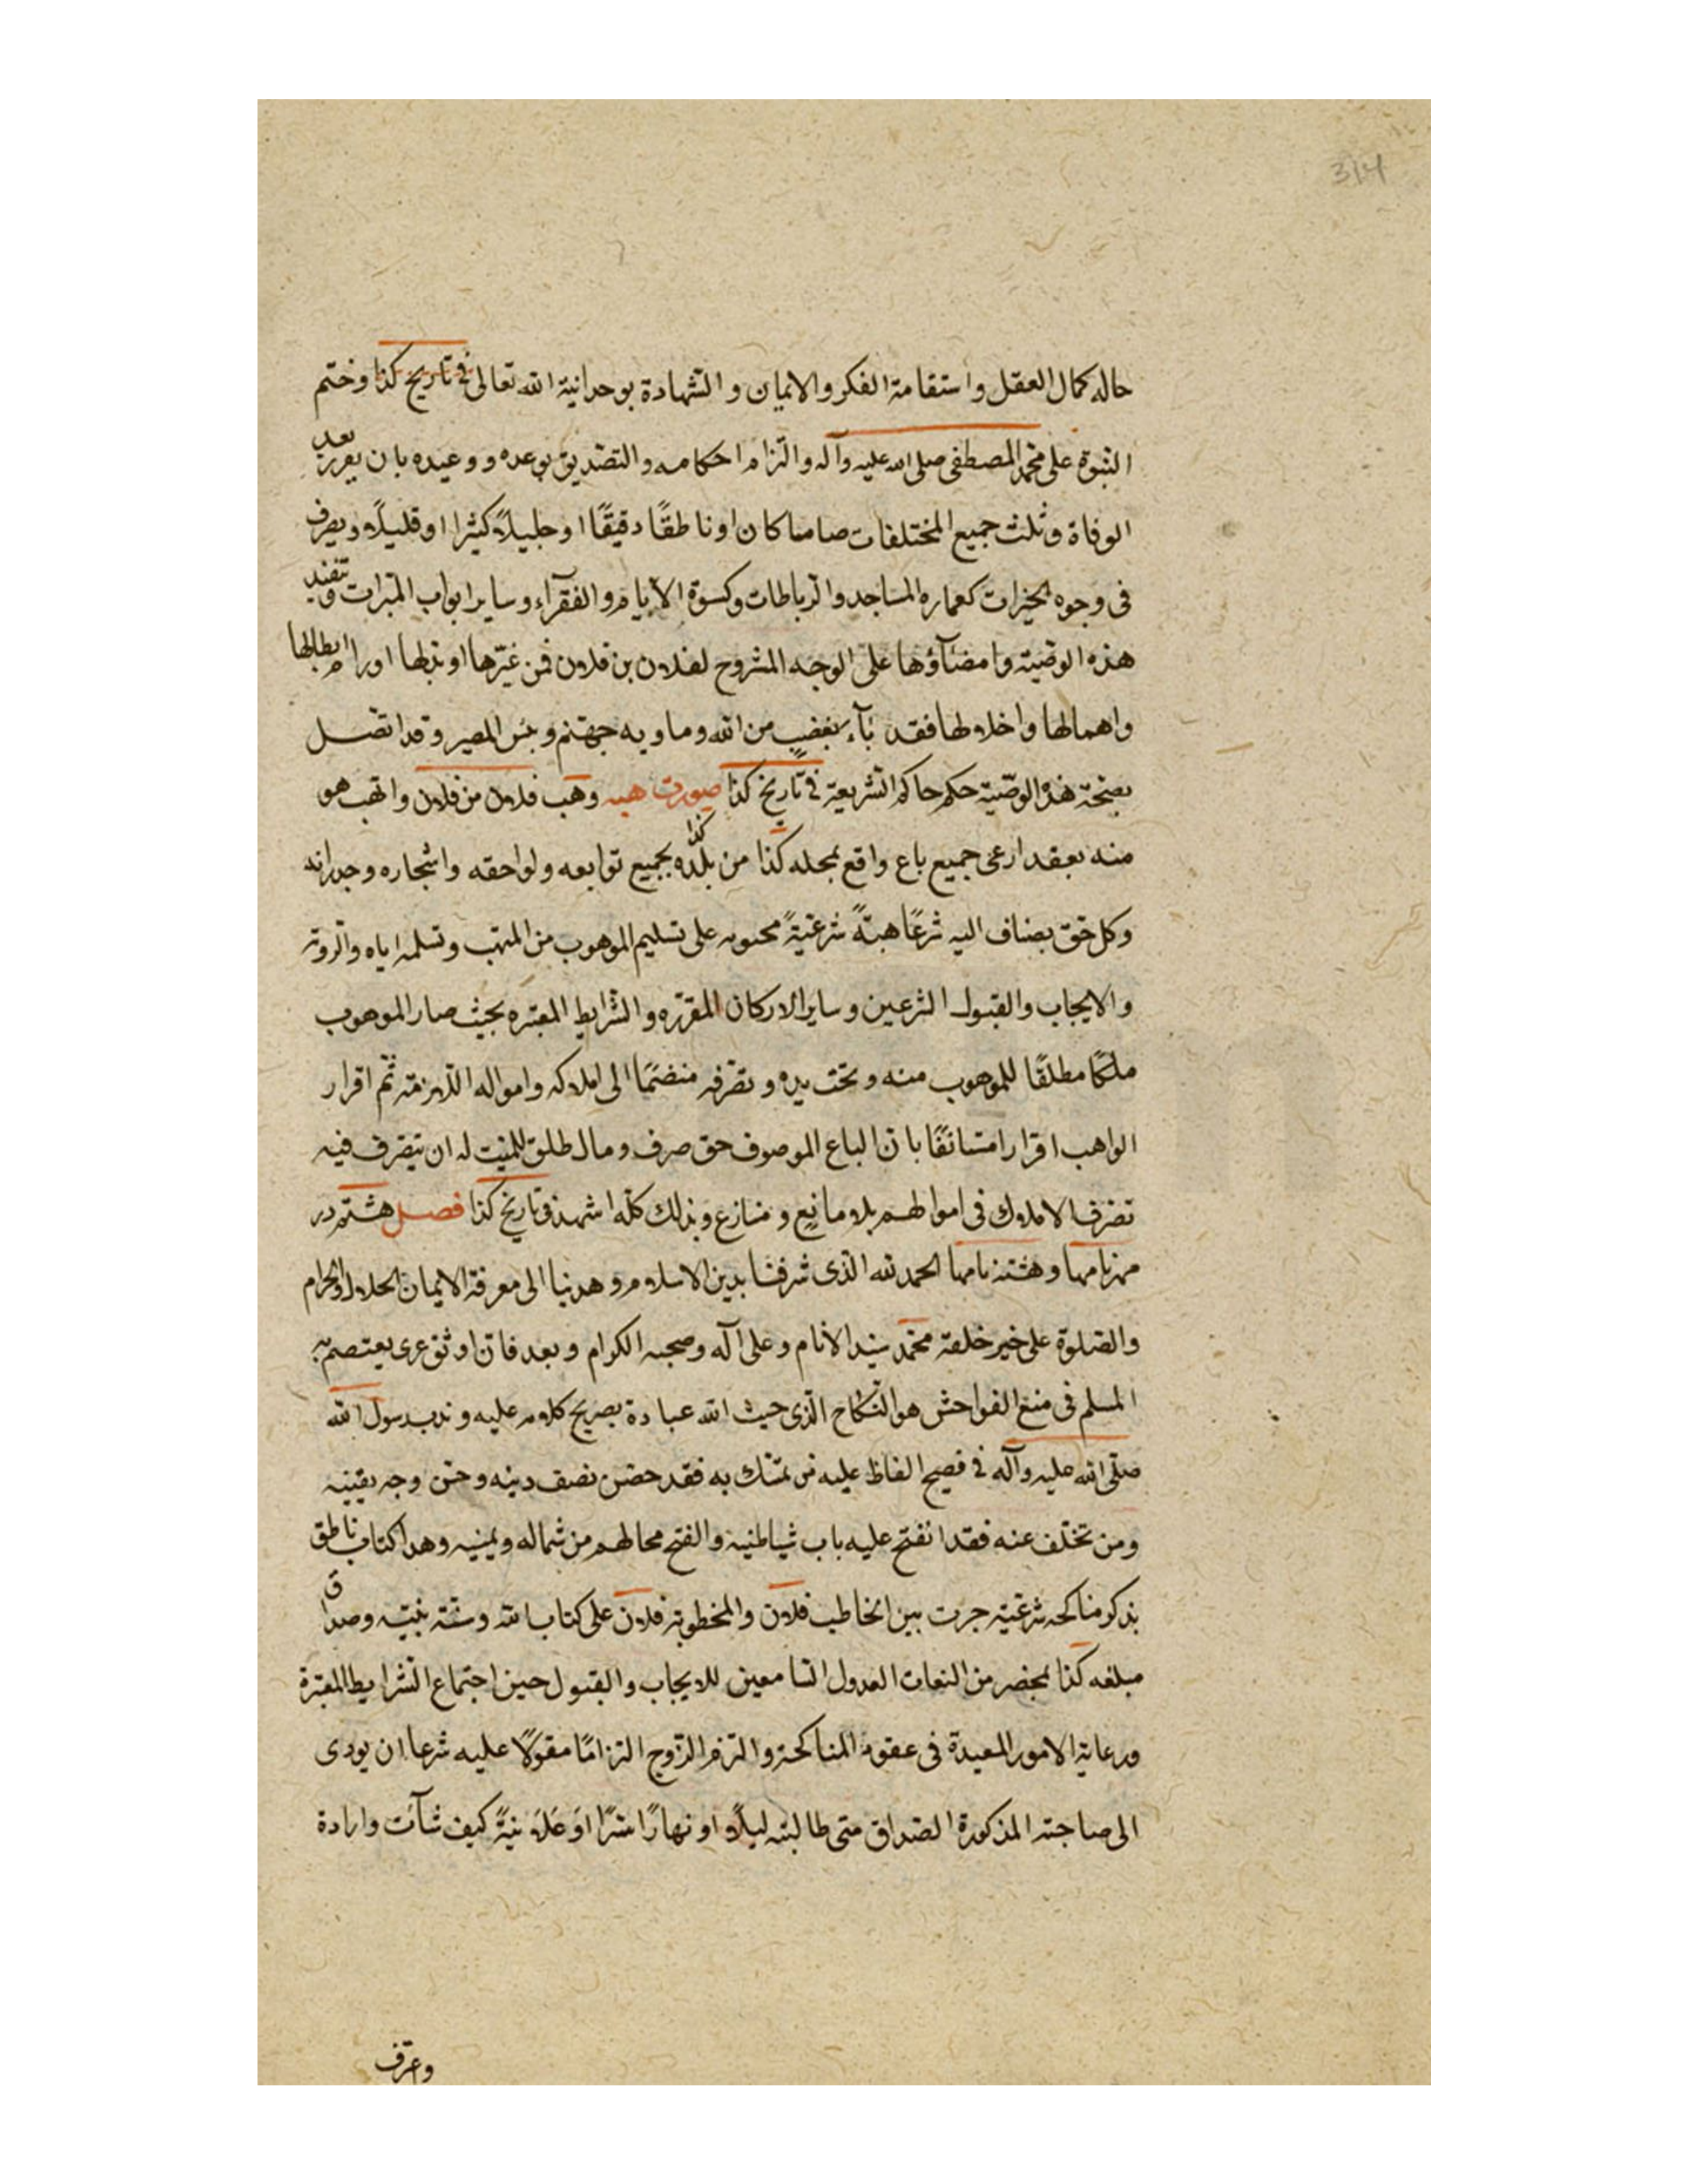 314
حاله كمال العقل واستقامة الفكر والايمان والشهادة بوحدانية الله تعالى فى تاريخ كذا وختم
النبوة على محمد المصطفى صلى الله عليه وآله والتزام احكامه والتصديق بوعده ووعيده بان يفرز بعد
الوفاة وثلث جميع المختلفات صامتا كان او ناطقًا دقيقًا او جليلاً كثيرا او قليلاً ويصرف
فى وجوه الخيرات كعماره المساجد والرباطات وكسوة الايام والفقرآء وساير ابواب المبرات وتنفيذ
هذه الوصية وامضآؤها على الوجه المشروح لفلان بن فلان فمن غيّرها او بدلها او رام ابطالها
واهمالها واخلالها فقد بآء بغضب من الله وماويه جهنم وبئس المصير وقد اتصل
بصحة هذه الوصية حكم حاكم الشريعة فى تاريخ كذا صورت هبه وهب فلان من فلان واتهب هو
منه بعقد ارعى جميع باع واقع بمحله كذا من بلده كذا بجميع توابعه ولواحقه واشجاره وجدرانه
وكل حق يضاف اليه شرعًا هبةً شرعيةً محتويه على تسليم الموهوب من المتهب وتسلمه اياه والروية
والايجاب والقبول الشرعين وساير الاركان المقرره والشرايط المعتبره بحيث صار الموهوب
ملكًا مطلقًا للموهوب منه وتحت يده وتصرفه منضمًا الى املاكه وامواله اللازمة ثم اقرار
الواهب اقرارا مستانفًا بان الباع الموصوف حق صرف ومال طلق للمتهب له ان يتصرف فيه
تصرف الاملاك فى اموالهم بلا مانع ومنازع وبذلك كله اشهد فى تاريخ كذا فصل هشتم در
مهرنامها وهشته نامها الحمد لله الذى شرفنا بدين الاسلام وهدنيا الى معرفة الايمان الحلال والحرام
والصلوة على خير خلقه محمد سيد الانام وعلى آله وصحبه الكرام وبعد فان اوثق عرى يعتصم به
المسلم فى منع الفواحش هو النكاح الذى حيث الله عبادة بصريح كلامه عليه وندب رسول الله
صلى الله عليه وآله فى فصيح الفاظ عليه من تمسك به فقد حضن نصف دينه وحسن وجه يقينه
ومن تخلف عنه فقد انفتح عليه باب شياطنيه والفتح محالهم من شماله ويمنيه وهذا كتاب ناطق
بذكر مناكحه شرعية جرت بين الخاطب فلان والمخطوبة فلان على كتاب الله وسنة نبيه وصداق
مبلغه كذا بمحضر من الثقات العدول السامعين للايجاب والقبول حين اجتماع الشرايط المعتبرة
ورعاية الامور المعيدة فى عقود المناكحة والتزم الزوج التزامًا مقولاً عليه شرعا ان يودى
الى صاحبته المذكورة الصداق متى طالبته ليلاً او نهارًا سرًا او علانيةً كيف شآئت وارادة
وعترف